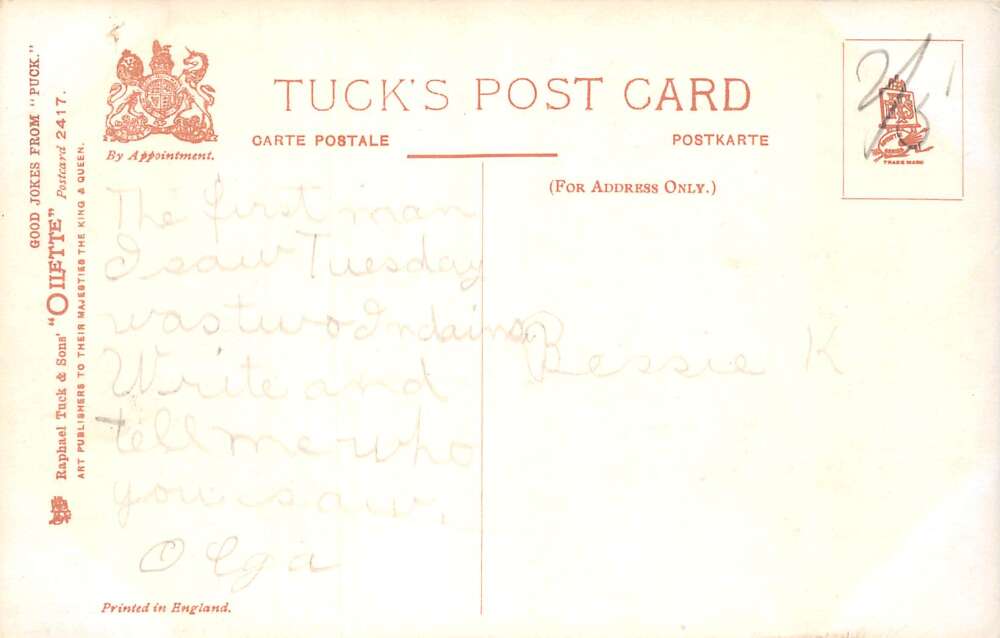 GOOD JOKES FROM "PUCK."
Raphael Tuck & Sons' "OILETTE" Postcard 2417.
ART PUBLISHERS TO THEIR MAJESTIES THE KING & QUEEN.
By Appointment.
TUCK'S POST CARD
CARTE POSTALE
POSTKARTE
(FOR ADDRESS ONLY.)
TRADE MARK
The first man
I saw Tuesday
was two Indains
Write and
tell me who
you saw.
Olga
Bessie K
Printed in England.